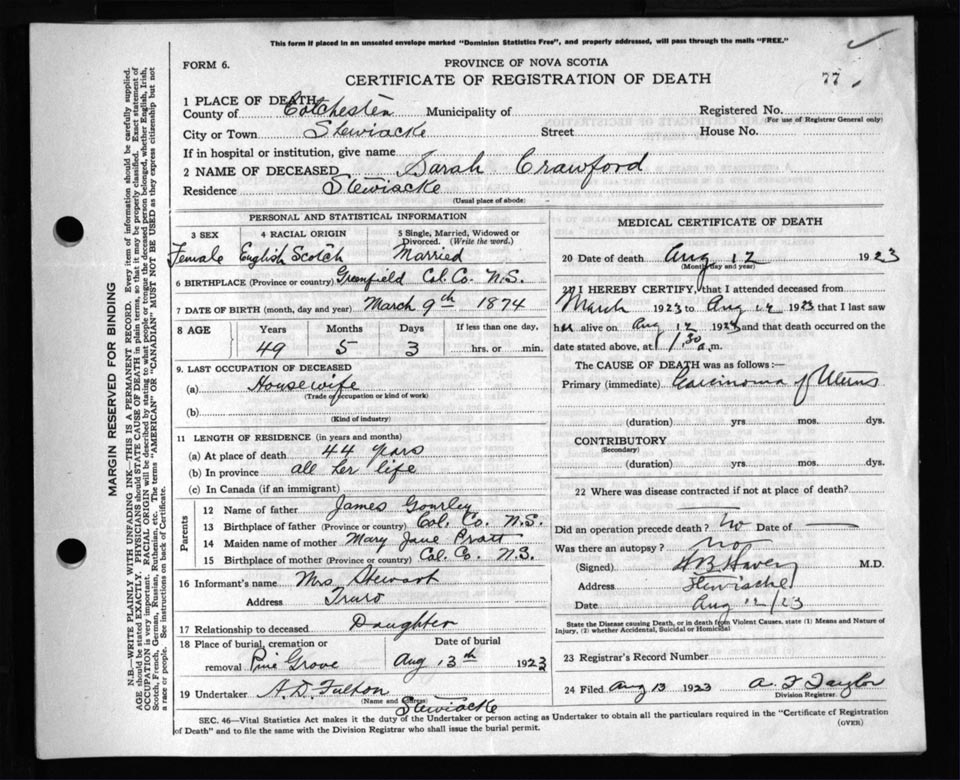 This form if placed in an unsealed envelope marked "Dominion Statistics Free", and properly addressed, will pass through the mails "FREE."
FORM 6.
PROVINCE OF NOVA SCOTIA
CERTIFICATE OF REGISTRATION OF DEATH
77
1 PLACE OF DEATH
County of Colchester Municipality of Registered No.
(For use of Registrar General only)
City or Town Stewiacke Street House No.
If in hospital or institution, give name
2 NAME OF DECEASED Sarah Crawford
Residence Stewiacke
(Usual place of abode)
PERSONAL AND STATISTICAL INFORMATION
3 SEX 4 RACIAL ORIGIN 5 Single, Married, Widowed or Divorced. (Write the word.)
Female English Scotch Married
6 BIRTHPLACE (Province or country) Greenfield Col. Co. N.S.
7 DATE OF BIRTH (month, day and year) March 9th 1874
8 AGE Years Months Days If less than one day,
49 5 3 hrs. or min.
9. LAST OCCUPATION OF DECEASED
(a) Housewife
(Trade or occupation or kind of work)
(b)
(Kind of industry)
11 LENGTH OF RESIDENCE (in years and months)
(a) At place of death 44 years
(b) In province all her life
(c) In Canada (if an immigrant)
Parents
12 Name of father James Gourley
13 Birthplace of father (Province or country) Col. Co. N.S.
14 Maiden name of mother Mary Jane Pratt
15 Birthplace of mother (Province or country) Col. Co. N.S.
16 Informant's name Mrs Stewart
Address Truro
17 Relationship to deceased Daughter
18 Place of burial, cremation or Date of burial
removal Pine Grove Aug 13th 1923
19 Undertaker A. D. Fulton
(Name and address) Stewiacke
MEDICAL CERTIFICATE OF DEATH
20 Date of death Aug 12 1923
(Month, day and year)
21 I HEREBY CERTIFY, that I attended deceased from
March 1923 to Aug 12 1923 that I last saw
her alive on Aug 12 1923 and that death occurred on
date stated above, at 1.30 a.m.
The CAUSE OF DEATH was as follows:—
Primary (immediate) Carcinoma of Uterus
(duration) yrs. mos. dys.
CONTRIBUTORY
(Secondary)
(duration) yrs. mos. dys.
22 Where was disease contracted if not at place of death?
Did an operation precede death? No Date of
Was there an autopsy? No
(Signed) M.D.
Address Stewiacke
Date Aug 12/23
State the Disease causing Death, or in death from Violent Causes, state (1) Means and Nature of
Injury, (2) whether Accidental, Suicidal or Homicidal
23 Registrar's Record Number
24 Filed Aug 13 1923 A. F. Taylor
Division Registrar.
SEC. 46—Vital Statistics Act makes it the duty of the Undertaker or person acting as Undertaker to obtain all the particulars required in the "Certificate of Registration
of Death" and to file the same with the Division Registrar who shall issue the burial permit.
(OVER)
MARGIN RESERVED FOR BINDING
N.B.—WRITE PLAINLY WITH UNFADING INK—THIS IS A PERMANENT RECORD. Every item of information should be carefully supplied.
AGE should be stated EXACTLY. PHYSICIANS should STATE CAUSE OF DEATH in plain terms, so that it may be properly classified. Exact statement of
OCCUPATION is very important. RACIAL ORIGIN will be described by stating to what people or tongue the deceased person belonged, whether English, Irish,
Scotch, French, German, Russian, Ruthenian, etc. The terms "AMERICAN" OR "CANADIAN" MUST NOT BE USED as they express citizenship but not
a race or people. See instructions on back of Certificate.